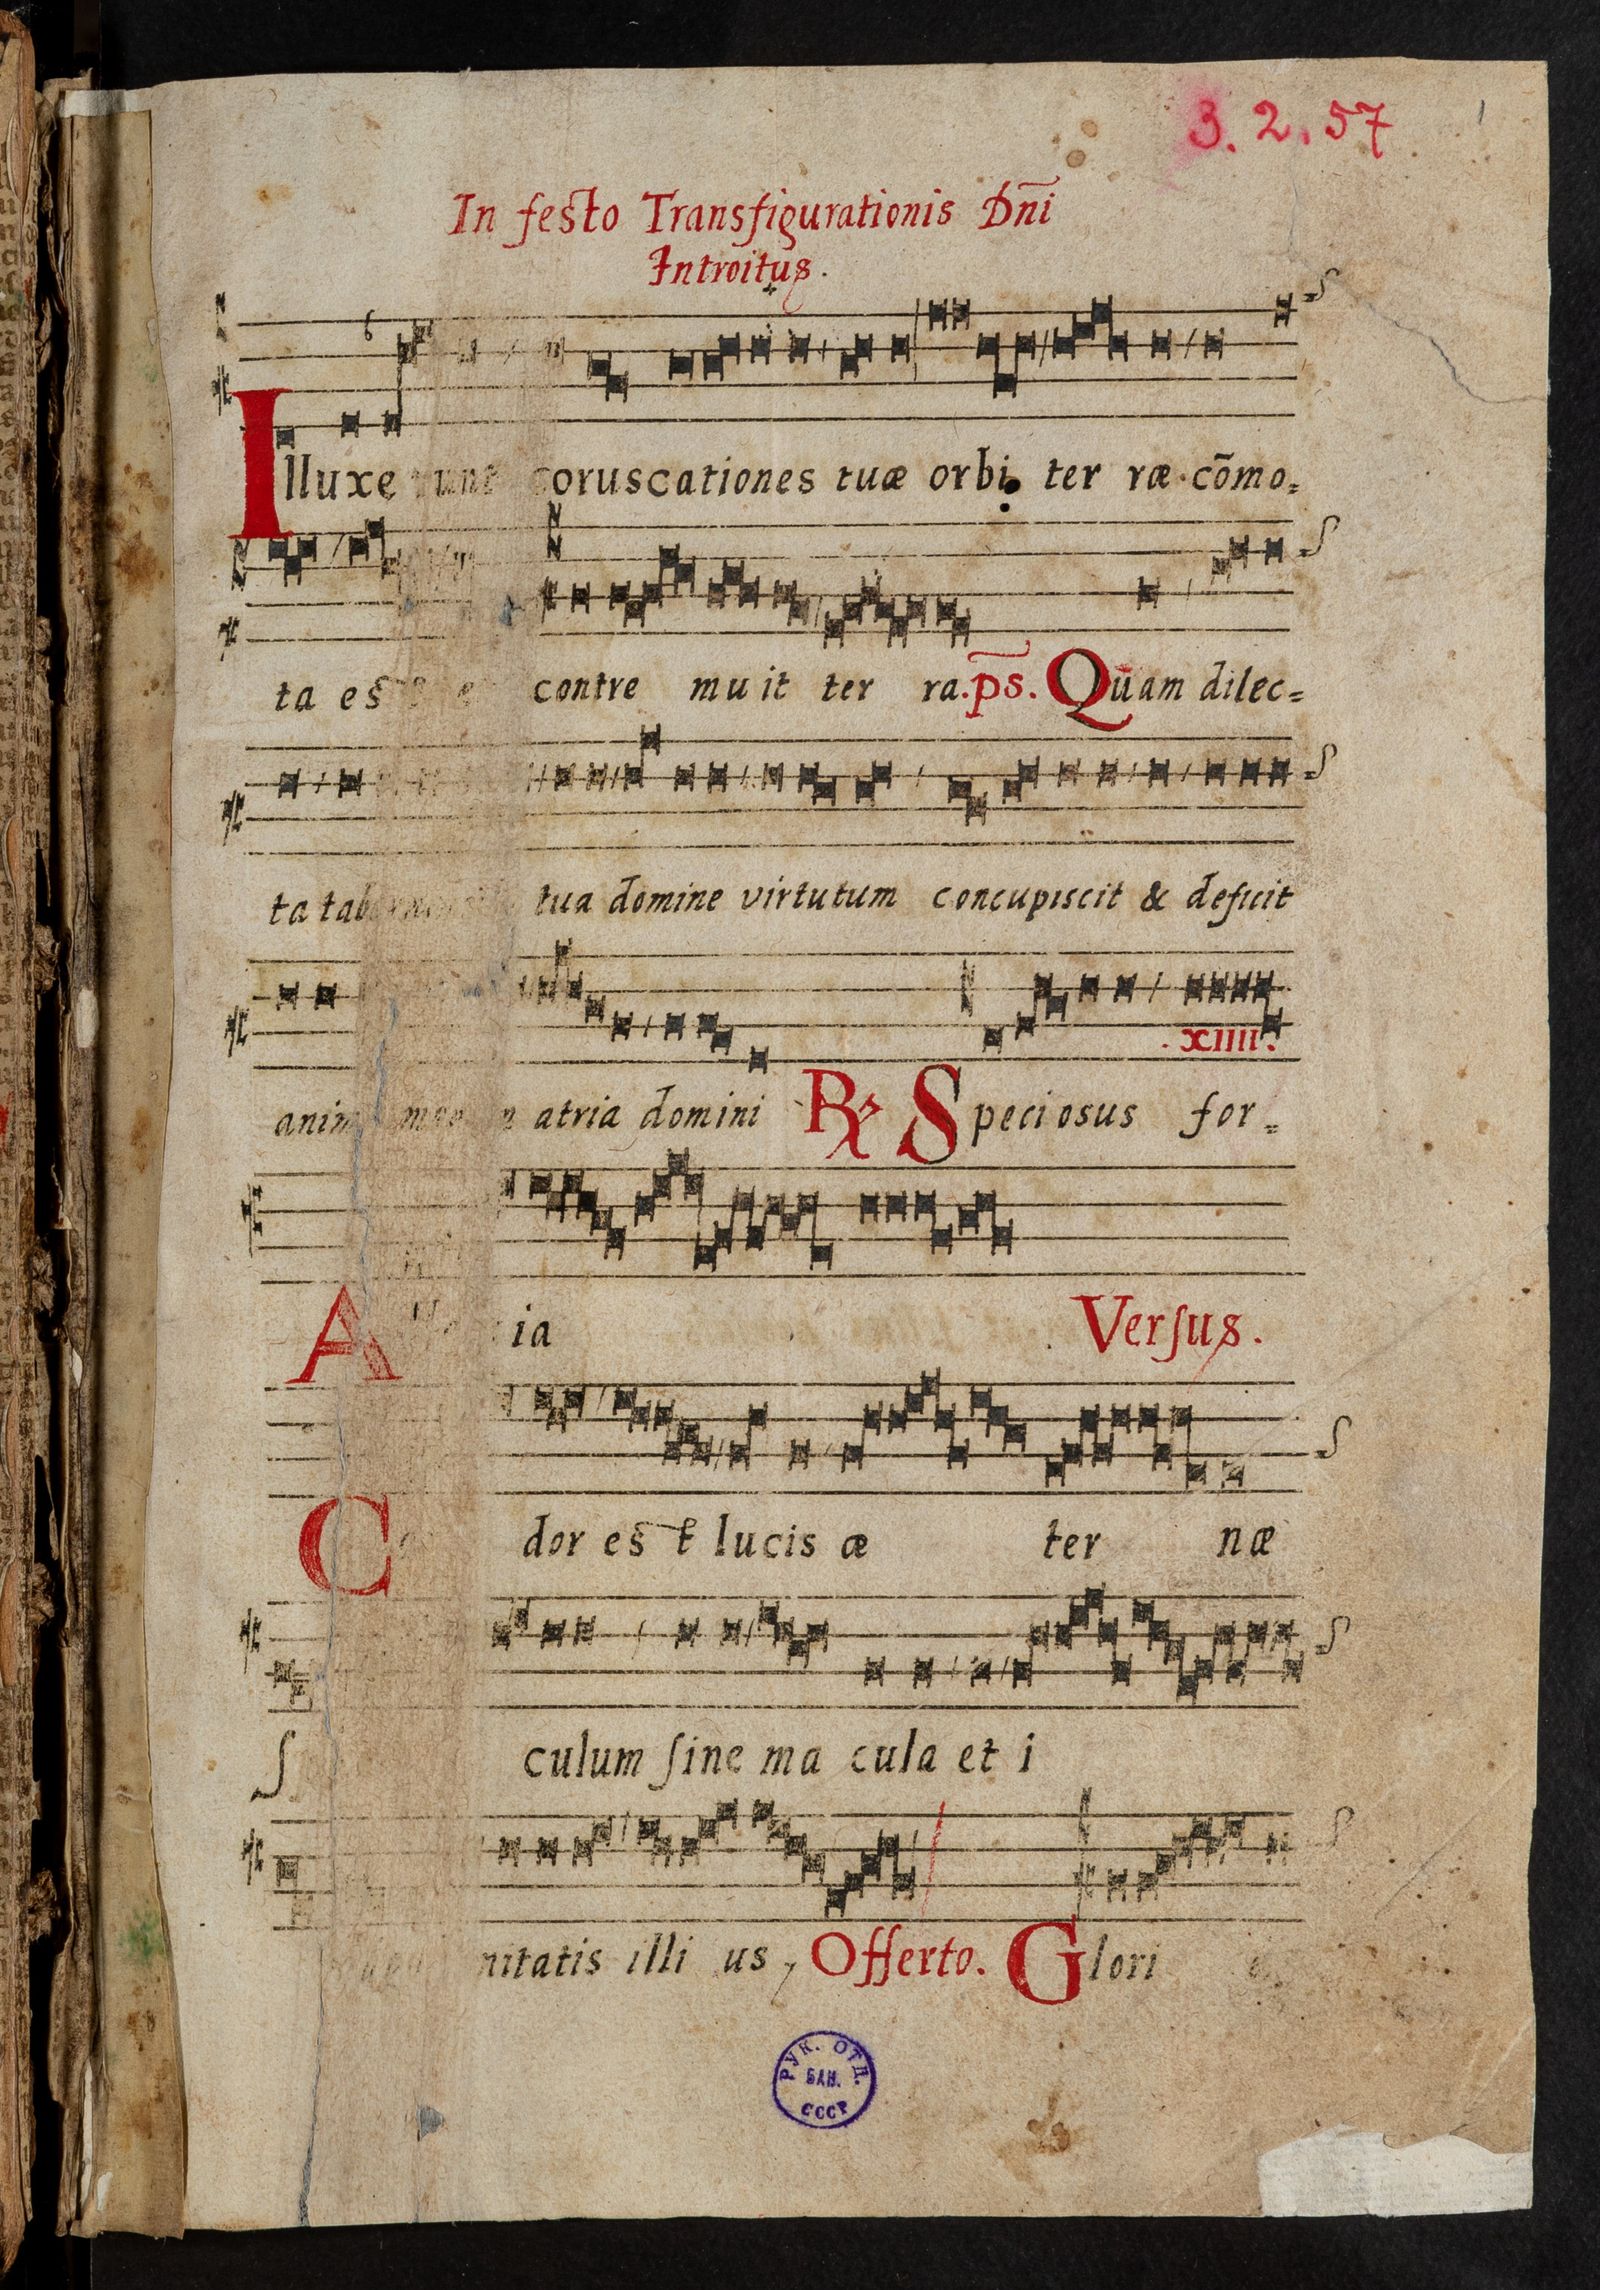 3. 2. 57
1
In festo Transfigurationis Dn̄i
Introitus.
6
Illuxe runt coruscationes tuæ orbi ter ræ. cōmo=
ta est contre mu it ter ra. ps. Quam dilec=
ta tabernacula tua domine virtutum concupiscit & deficit
xiiii.
anima mea in atria domini ℟ Speciosus for=
A ia Versus.
C dor est lucis æ ter næ
S culum sine ma cula et i
nitatis illi us, Offerto. Glori
РУК. ОТД.
БАН.
СССР